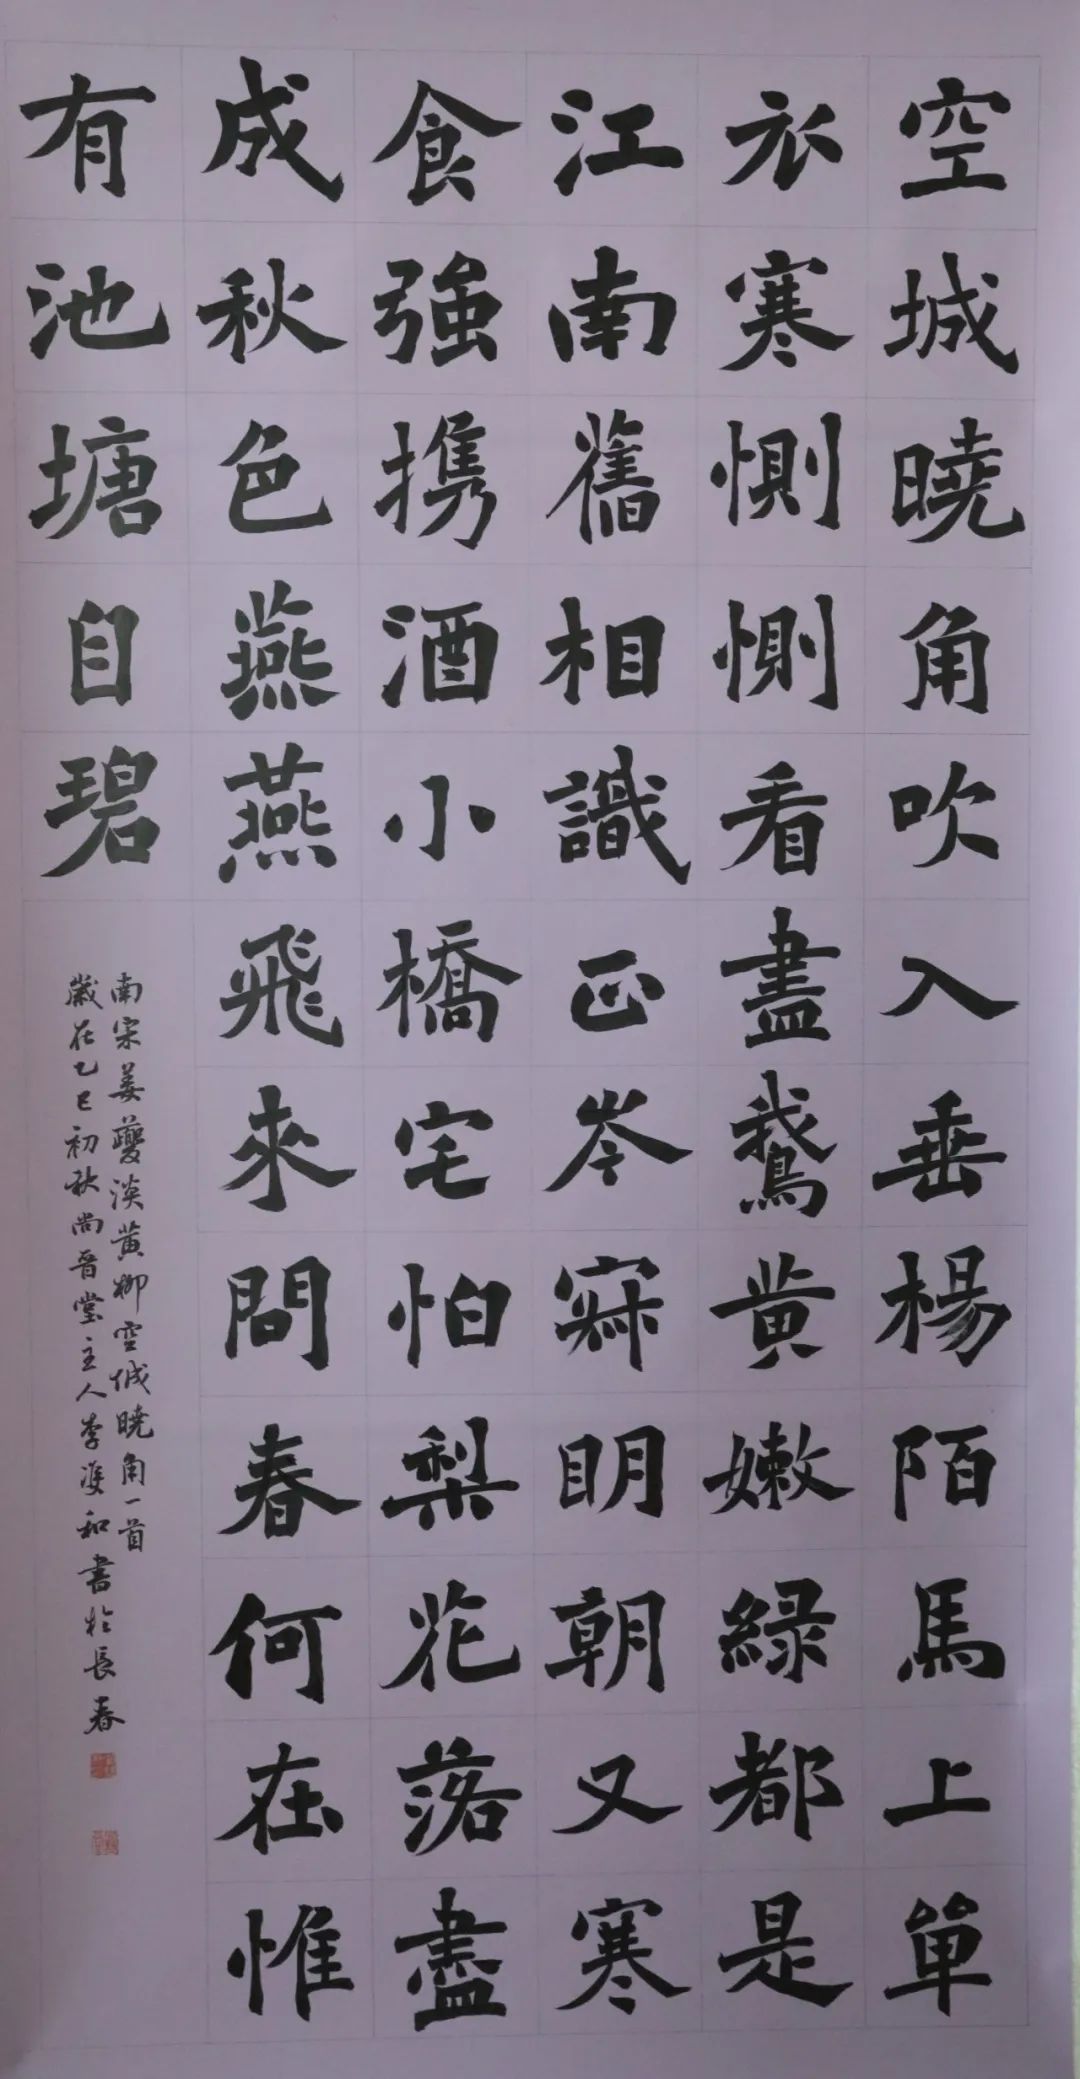 空城曉角吹入垂楊陌馬上單
衣寒惻惻看盡鵞黃嫩綠都是
江南舊相識正岑寂明朝又寒
食強携酒小橋宅怕梨花落盡
成秋色燕燕飛來問春何在惟
有池塘自碧
南宋姜夔淡黃柳空城曉角一首
歲在乙巳初秋尚晉堂主人李和書於長春